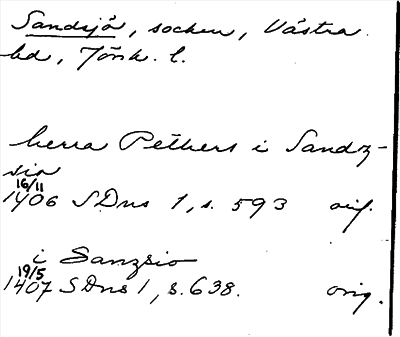 Sandsjö, socken, Västra
hd, Jönk. l.
herra Pethers i Sandz-
sio
16/11
1406 SDns 1, s. 593 orig.
i Sanzsio
19/5
1407 SDns 1, s. 638. orig.